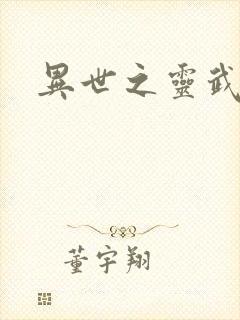 異世之靈武
董宇翔